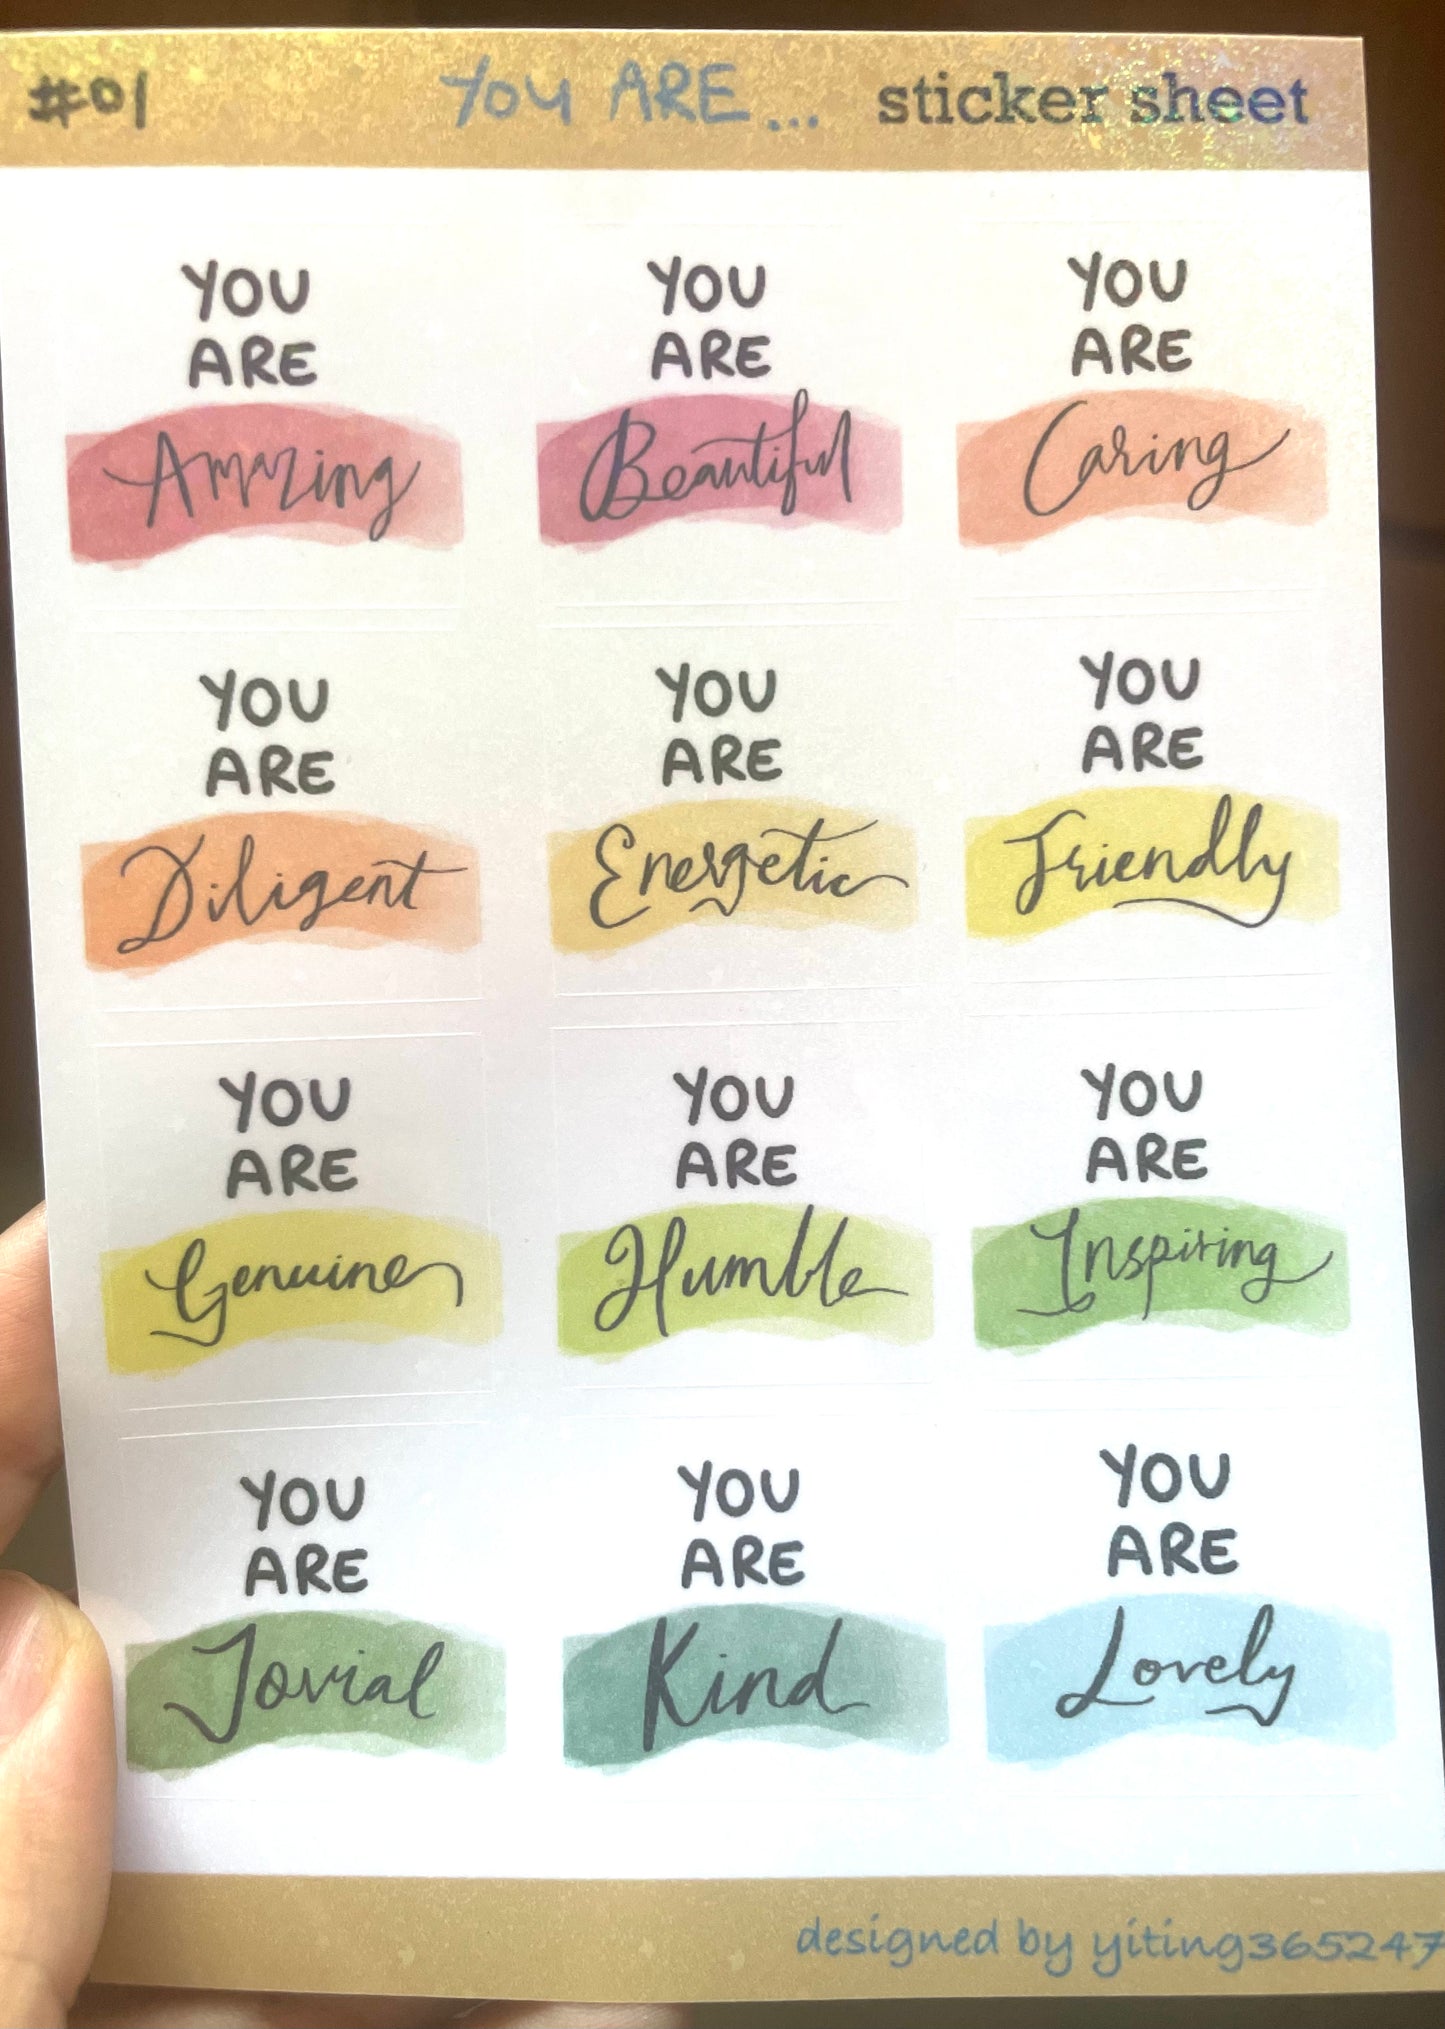 #01 YOU ARE... sticker sheet
YOU
ARE
Amazing
YOU
ARE
Beautiful
YOU
ARE
Caring
YOU
ARE
Diligent
YOU
ARE
Energetic
YOU
ARE
Friendly
YOU
ARE
Genuine
YOU
ARE
Humble
YOU
ARE
Inspiring
YOU
ARE
Jovial
YOU
ARE
Kind
YOU
ARE
Lovely
designed by yiting365247